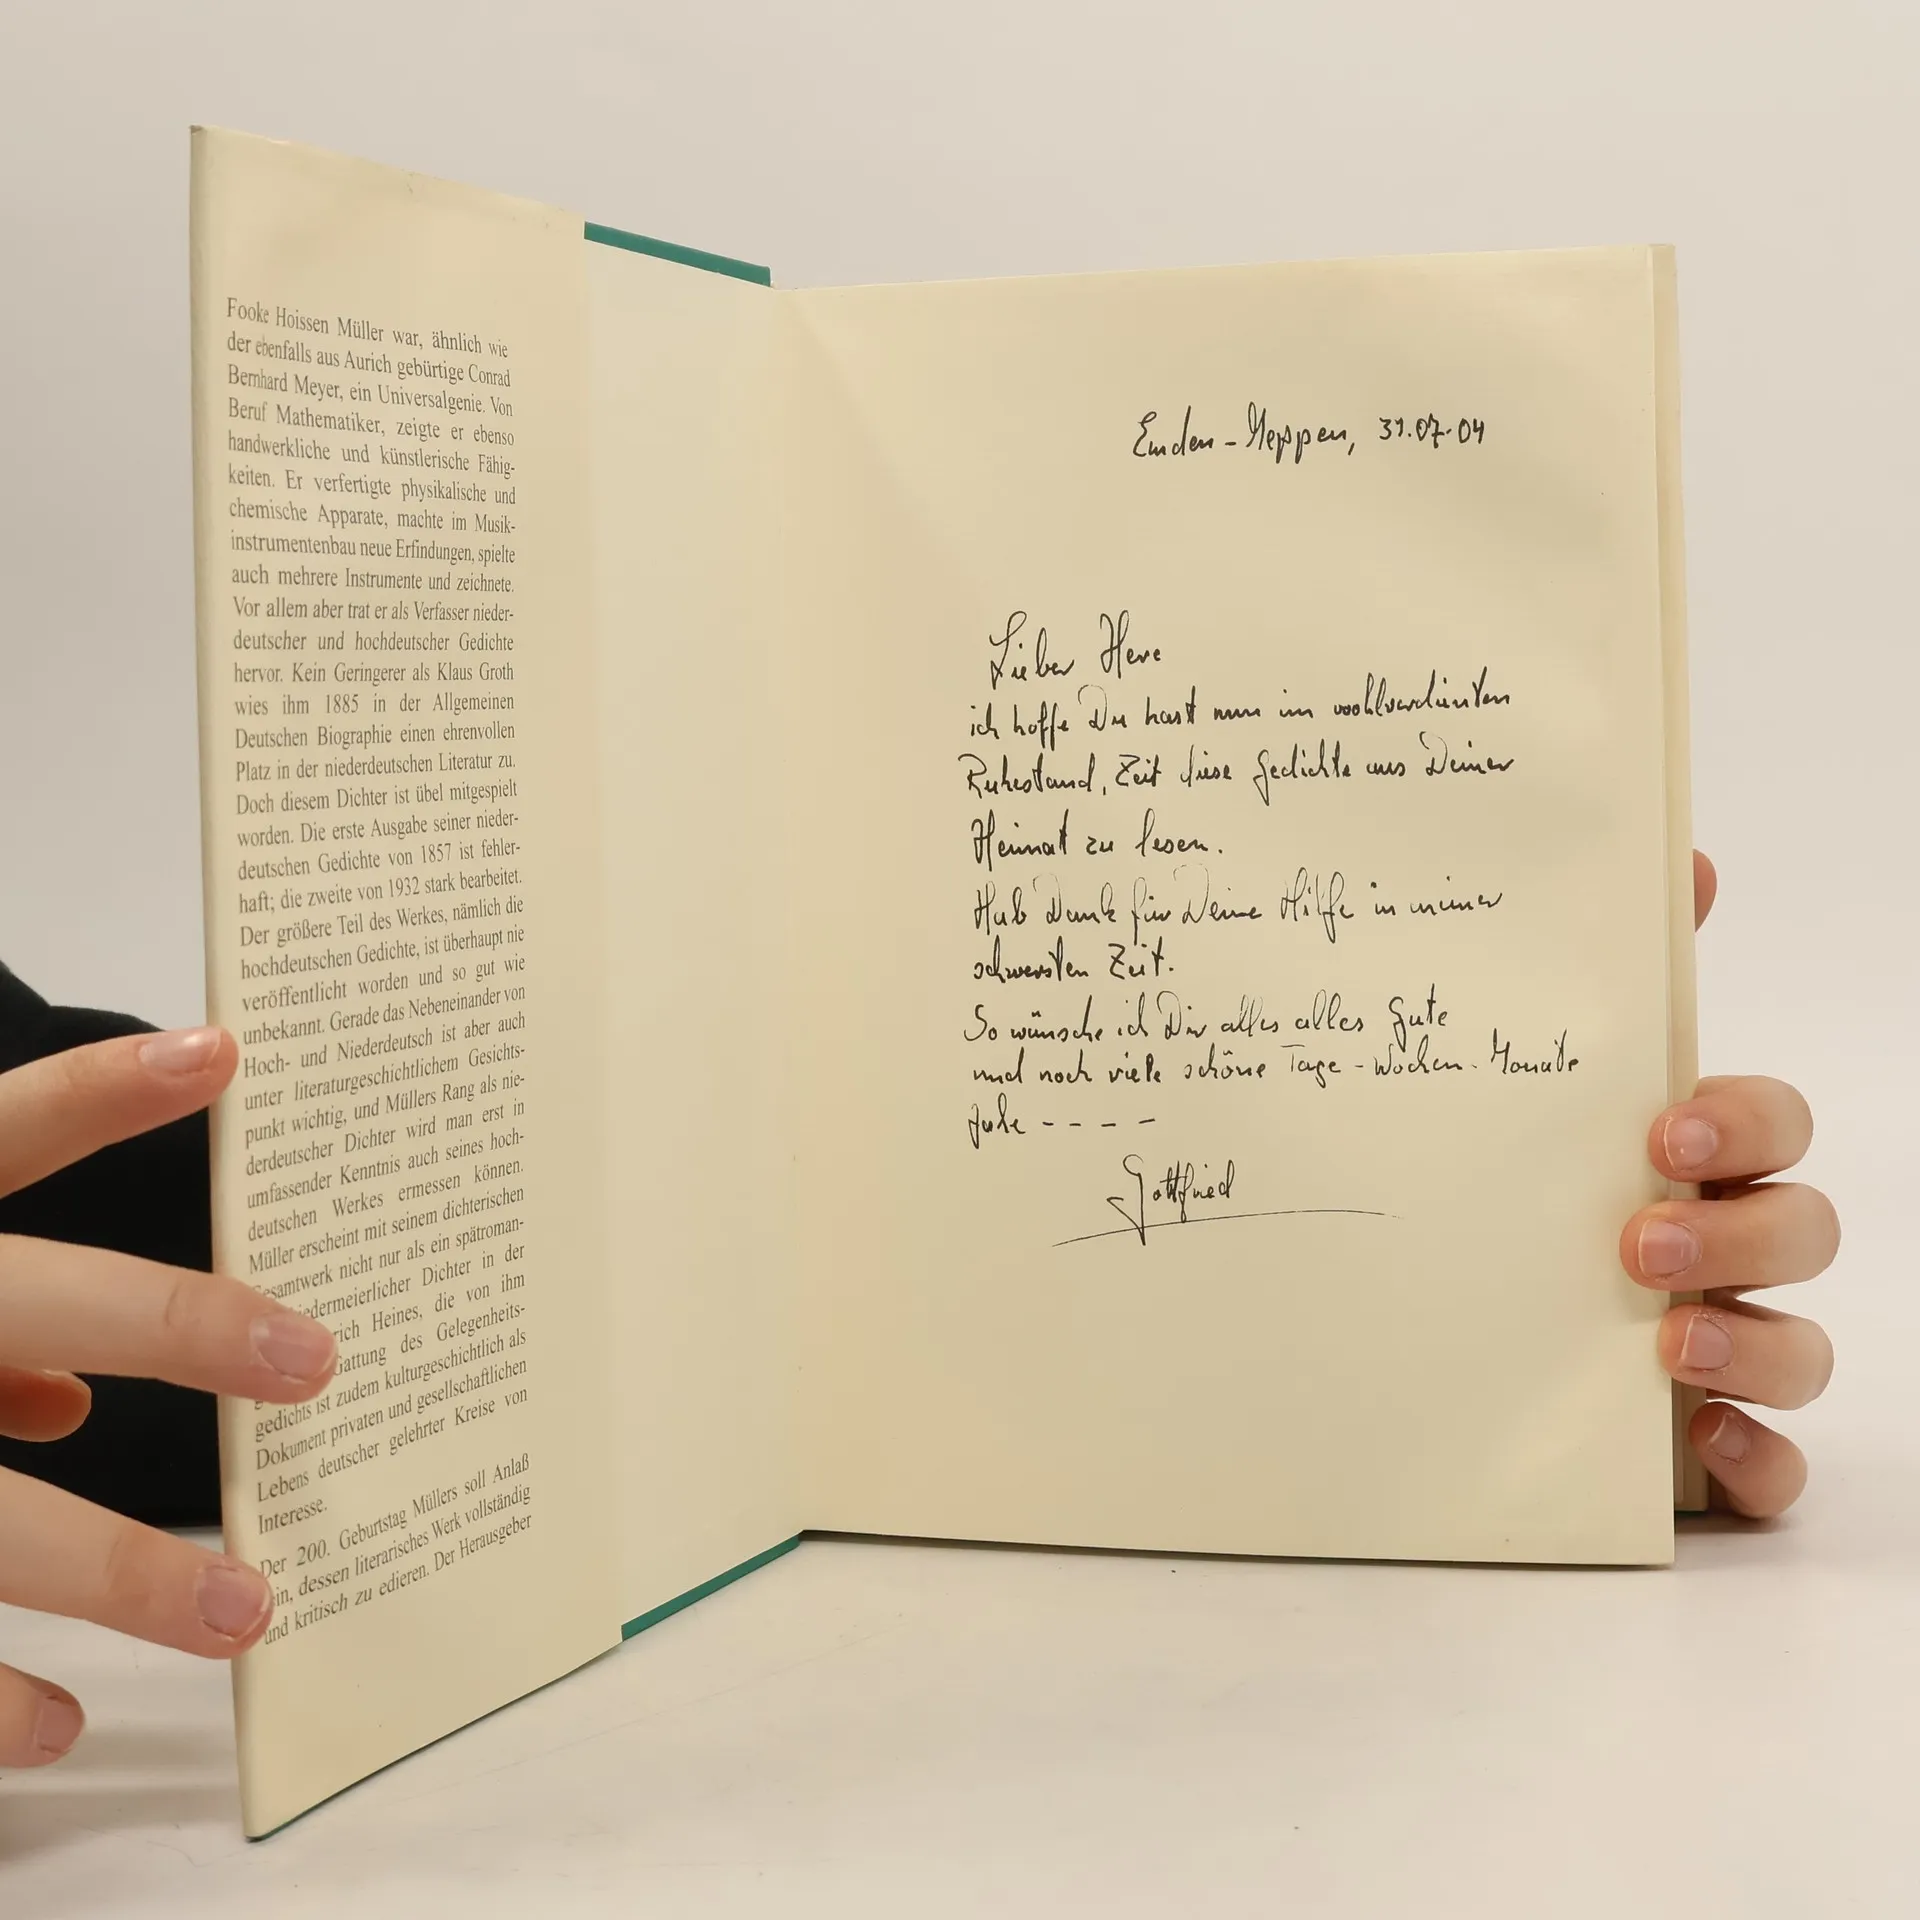 Fooke Hoissen Müller war, ähnlich wie
der ebenfalls aus Aurich gebürtige Conrad
Bernhard Meyer, ein Universalgenie. Von
Beruf Mathematiker, zeigte er ebenso
handwerkliche und künstlerische Fähig-
keiten. Er verfertigte physikalische und
chemische Apparate, machte im Musik-
instrumentenbau neue Erfindungen, spielte
auch mehrere Instrumente und zeichnete.
Vor allem aber trat er als Verfasser nieder-
deutscher und hochdeutscher Gedichte
hervor. Kein Geringerer als Klaus Groth
wies ihm 1885 in der Allgemeinen
Deutschen Biographie einen ehrenvollen
Platz in der niederdeutschen Literatur zu.
Doch diesem Dichter ist übel mitgespielt
worden. Die erste Ausgabe seiner nieder-
deutschen Gedichte von 1857 ist fehler-
haft; die zweite von 1932 stark bearbeitet.
Der größere Teil des Werkes, nämlich die
hochdeutschen Gedichte, ist überhaupt nie
veröffentlicht worden und so gut wie
unbekannt. Gerade das Nebeneinander von
Hoch- und Niederdeutsch ist aber auch
unter literaturgeschichtlichem Gesichts-
punkt wichtig, und Müllers Rang als nie-
derdeutscher Dichter wird man erst in
umfassender Kenntnis auch seines hoch-
deutschen Werkes ermessen können.
Müller erscheint mit seinem dichterischen
Gesamtwerk nicht nur als ein spätroman-
Dichter in der
Heines, die von ihm
Gattung des Gelegenheits-
gedichts ist zudem kulturgeschichtlich als
Dokument privaten und gesellschaftlichen
Lebens deutscher gelehrter Kreise von
Interesse.
Der 200. Geburtstag Müllers soll Anlaß
ein, dessen literarisches Werk vollständig
und kritisch zu edieren. Der Herausgeber
Emden - Meppen, 31.07.04
Lieber
ich hoffe Du hast nun im wohlverdienten
Ruhestand, Zeit diese Gedichte aus Deiner
Heimat zu lesen.
Hab Dank für Deine Hilfe in meiner
schwersten Zeit.
So wünsche ich Dir alles alles Gute
und noch viele schöne Tage - Wochen - Monate
Jahre - - - -
Gottfried